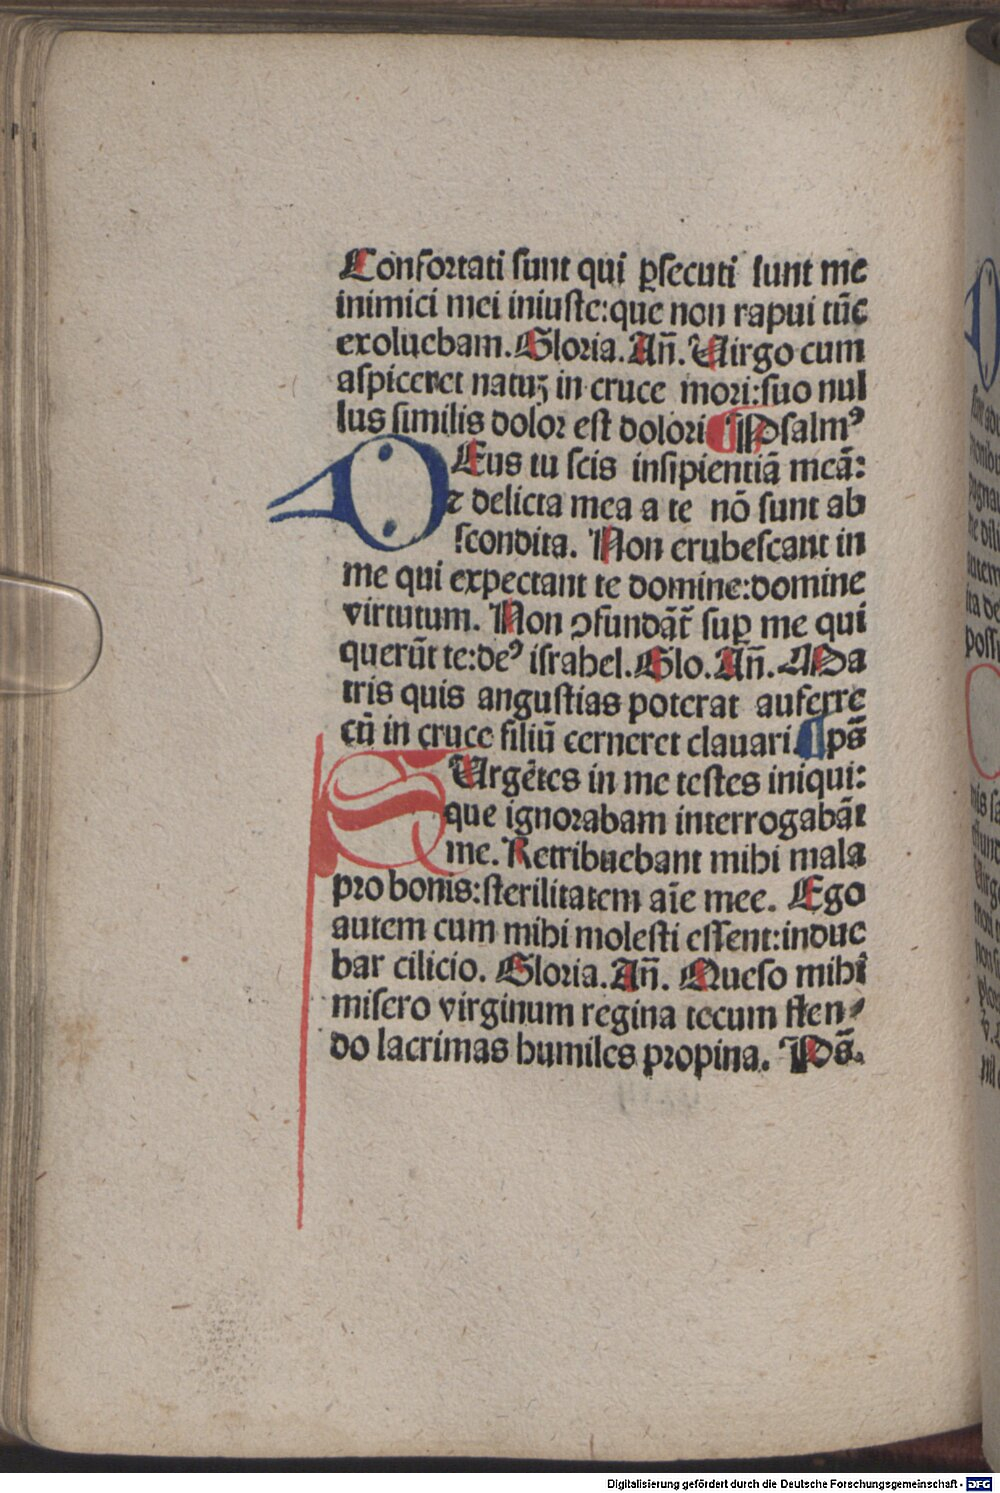 Confortati ſunt qui ꝑſecuti ſunt me
inimici mei iniuſte:que non rapui tūc
exoluebam. Gloria. Añ. Uirgo cum
aſpiceret natuꝫ in cruce mori:ſuo nul
lus ſimilis dolor eſt dolori ¶ Pſalmꝰ
DEus tu ſcis inſipientiā meā:
⁊ delicta mea a te nō ſunt ab
ſcondita. Non erubeſcant in
me qui expectant te domine:domine
virtutum. Non ꝯfundāt̄ ſuꝑ me qui
querūt te:deꝰ iſrahel. Glo. Añ. Ma
tris quis anguſtias poterat auferre
cū in cruce filiū cerneret clauari ¶ ps̄
SUrgētes in me teſtes iniqui:
que ignorabam interrogabāt
me. Retribuebant mihi mala
pro bonis:ſterilitatem aīe mee. Ego
autem cum mihi moleſti eſſent:indue
bar cilicio. Gloria. Añ. Queſo mihi
miſero virginum regina tecum flen⸗
do lacrimas humiles propina. Ps̄.
Digitalisierung gefördert durch die Deutsche Forschungsgemeinschaft - DFG